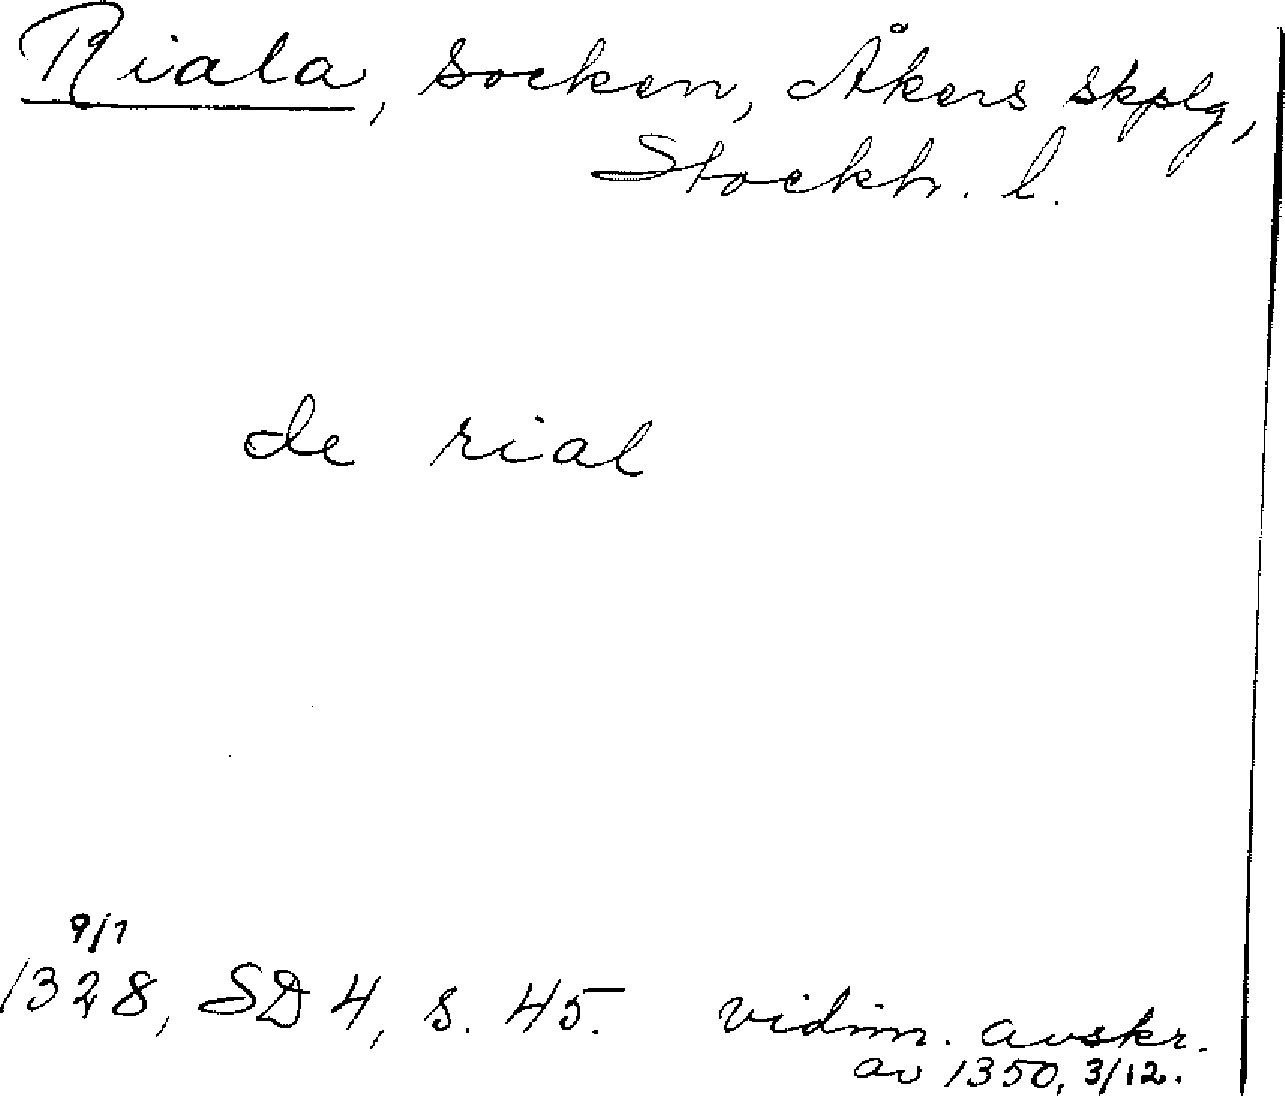 Riala, socken, Åkers skplg,
Stockh. l.
de rial
9/1
1328, SD 4, s. 45. vidim. avskr.
av 1350, 3/12.